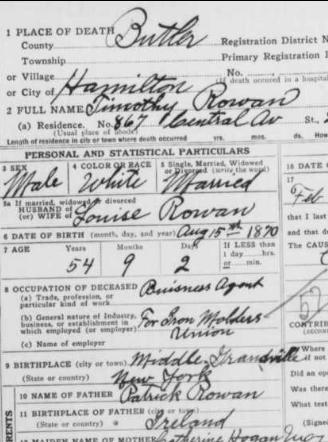 1 PLACE OF DEATH
County Butler Registration District N
Township Primary Registration
or Village No.
(If death occurred in a hospital
or City of Hamilton
2 FULL NAME Timothy Rowan
(a) Residence. No. 867 Central Av St.,
(Usual place of abode)
Length of residence in city or town where death occurred yrs. mos. ds. How
PERSONAL AND STATISTICAL PARTICULARS
3 SEX 4 COLOR OR RACE 5 Single, Married, Widowed
or Divorced (write the word) 16 DATE O
Male White Married
5a If married, widowed or divorced 17
HUSBAND of Feb
(or) WIFE of Louise Rowan that I last
6 DATE OF BIRTH (month, day, and year) Aug 15th 1870 and that d
7 AGE Years Months Days If LESS than The CAUS
1 day hrs.
54 9 2 or min.
8 OCCUPATION OF DECEASED Buisness Agent
(a) Trade, profession, or
particular kind of work
(b) General nature of Industry, For Iron Molders
business, or establishment in Union
which employed (or employer)
(c) Name of employer CONTRIB
9 BIRTHPLACE (city or town) Middle Grandville
(State or country) New York Did an op
10 NAME OF FATHER Patrick Rowan Was there
11 BIRTHPLACE OF FATHER What test
(State or country) Ireland
12 MAIDEN NAME OF MOTHER Catherine Hogan
PARENTS